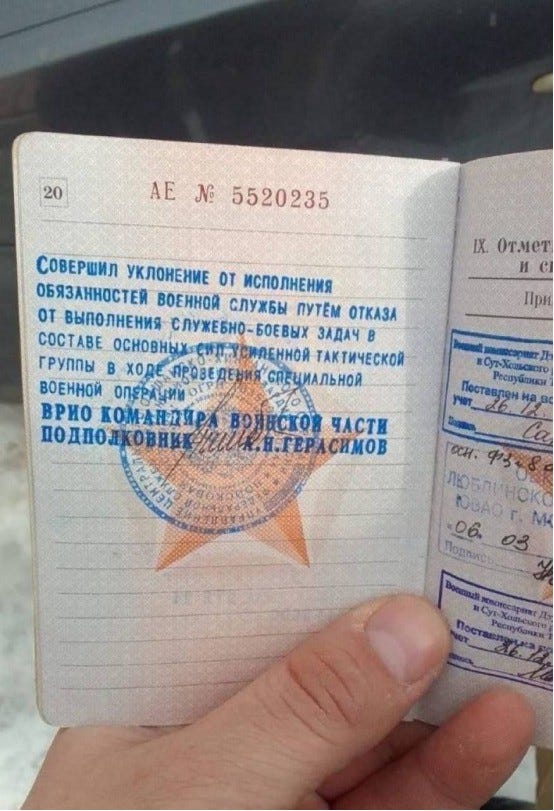 20
АЕ № 5520235
СОВЕРШИЛ УКЛОНЕНИЕ ОТ ИСПОЛНЕНИЯ
ОБЯЗАННОСТЕЙ ВОЕННОЙ СЛУЖБЫ ПУТЁМ ОТКАЗА
ОТ ВЫПОЛНЕНИЯ СЛУЖЕБНО-БОЕВЫХ ЗАДАЧ В
СОСТАВЕ ОСНОВНЫХ СИЛ УСИЛЕННОЙ ТАКТИЧЕСКОЙ
ГРУППЫ В ХОДЕ ПРОВЕДЕНИЯ СПЕЦИАЛЬНОЙ
ВОЕННОЙ ОПЕРАЦИИ
ВРИО КОМАНДИРА ВОИНСКОЙ ЧАСТИ
ПОДПОЛКОВНИК А.Н.ГЕРАСИМОВ
IX. Отмет
и с
При
Военный комиссариат
в Сут-Хольского
Республики
Поставлен на во
учет 26.12
осн.
ЛЮБЛИНСКО
ЮВАО г. М
06 03
Подпись
Военный комиссариат
в Сут-Хольского
Республики
Поставлен на
учет 26.12